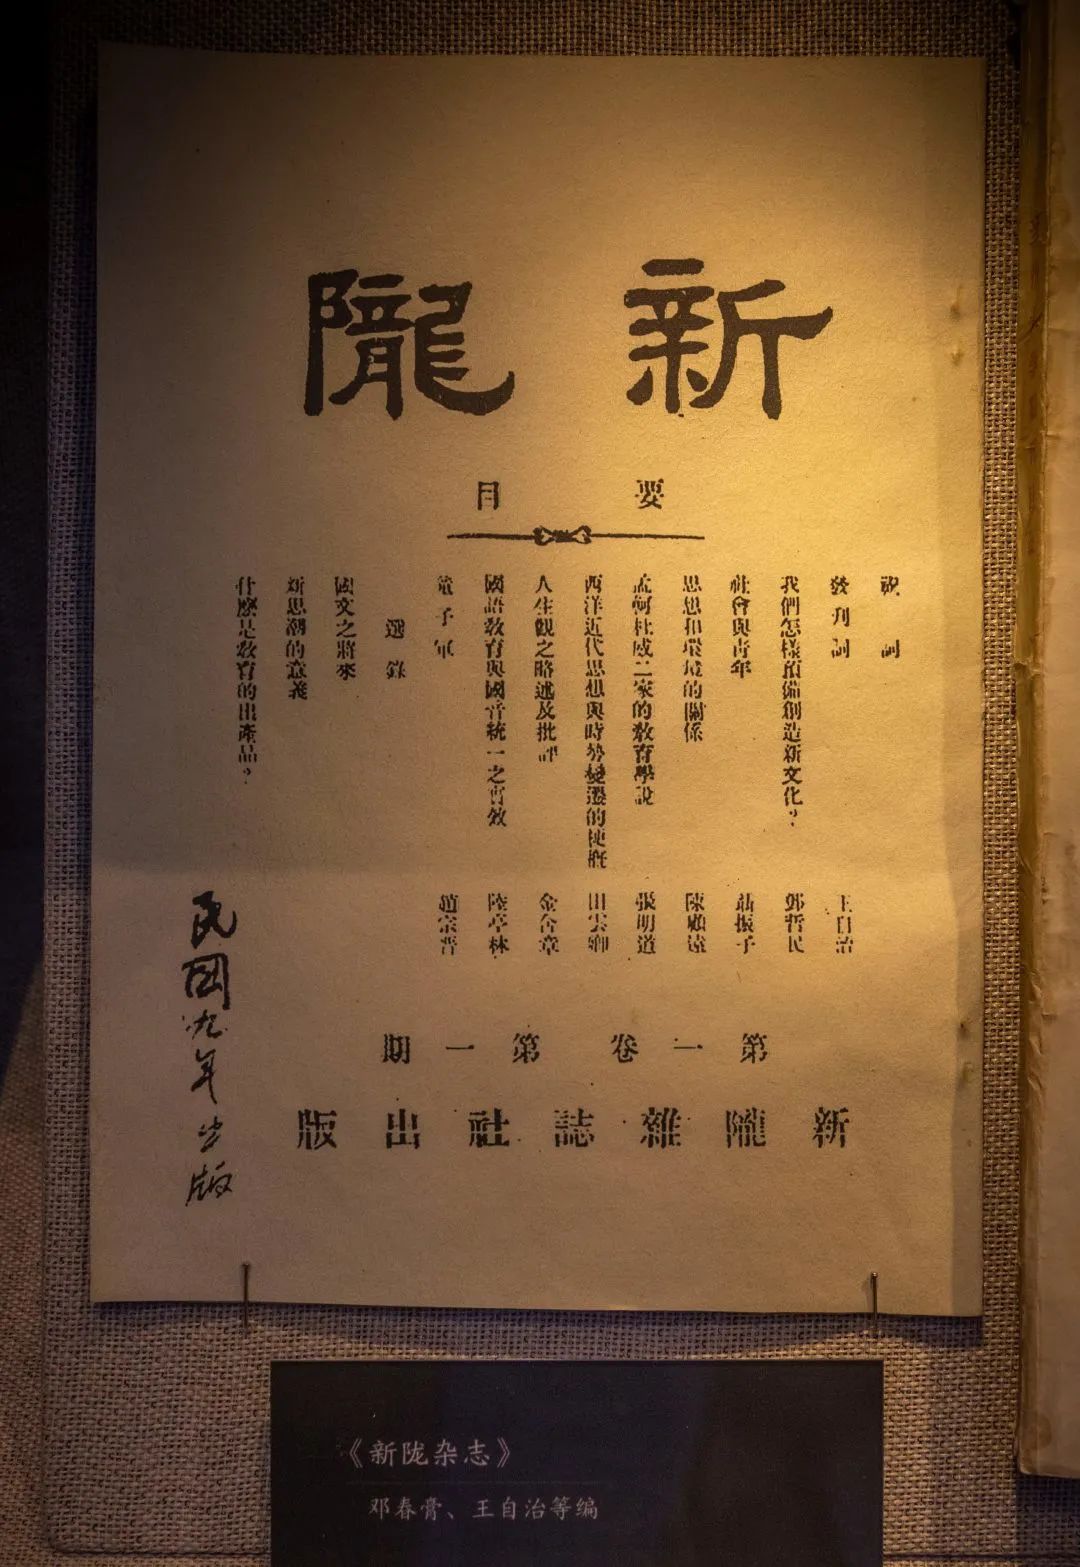 新隴
要目
祝詞
發刊詞 王自治
我們怎樣預備創造新文化？ 鄧哲民
社會與青年 振子
思想和環境的關係 陳顧遠
孟軻杜威二家的教育學說 張明道
西洋近代思想與時勢變遷的梗概 田雲卿
人生觀之略述及批評 金含章
國語教育與國音統一之實效 陸亭林
童子軍 趙宗晉
選錄
國文之將來
新思潮的意義
什麼是教育的出產品？
民國九年出版
第一卷 第一期
新隴雜誌社出版
《新陇杂志》
邓春膏、王自治等编